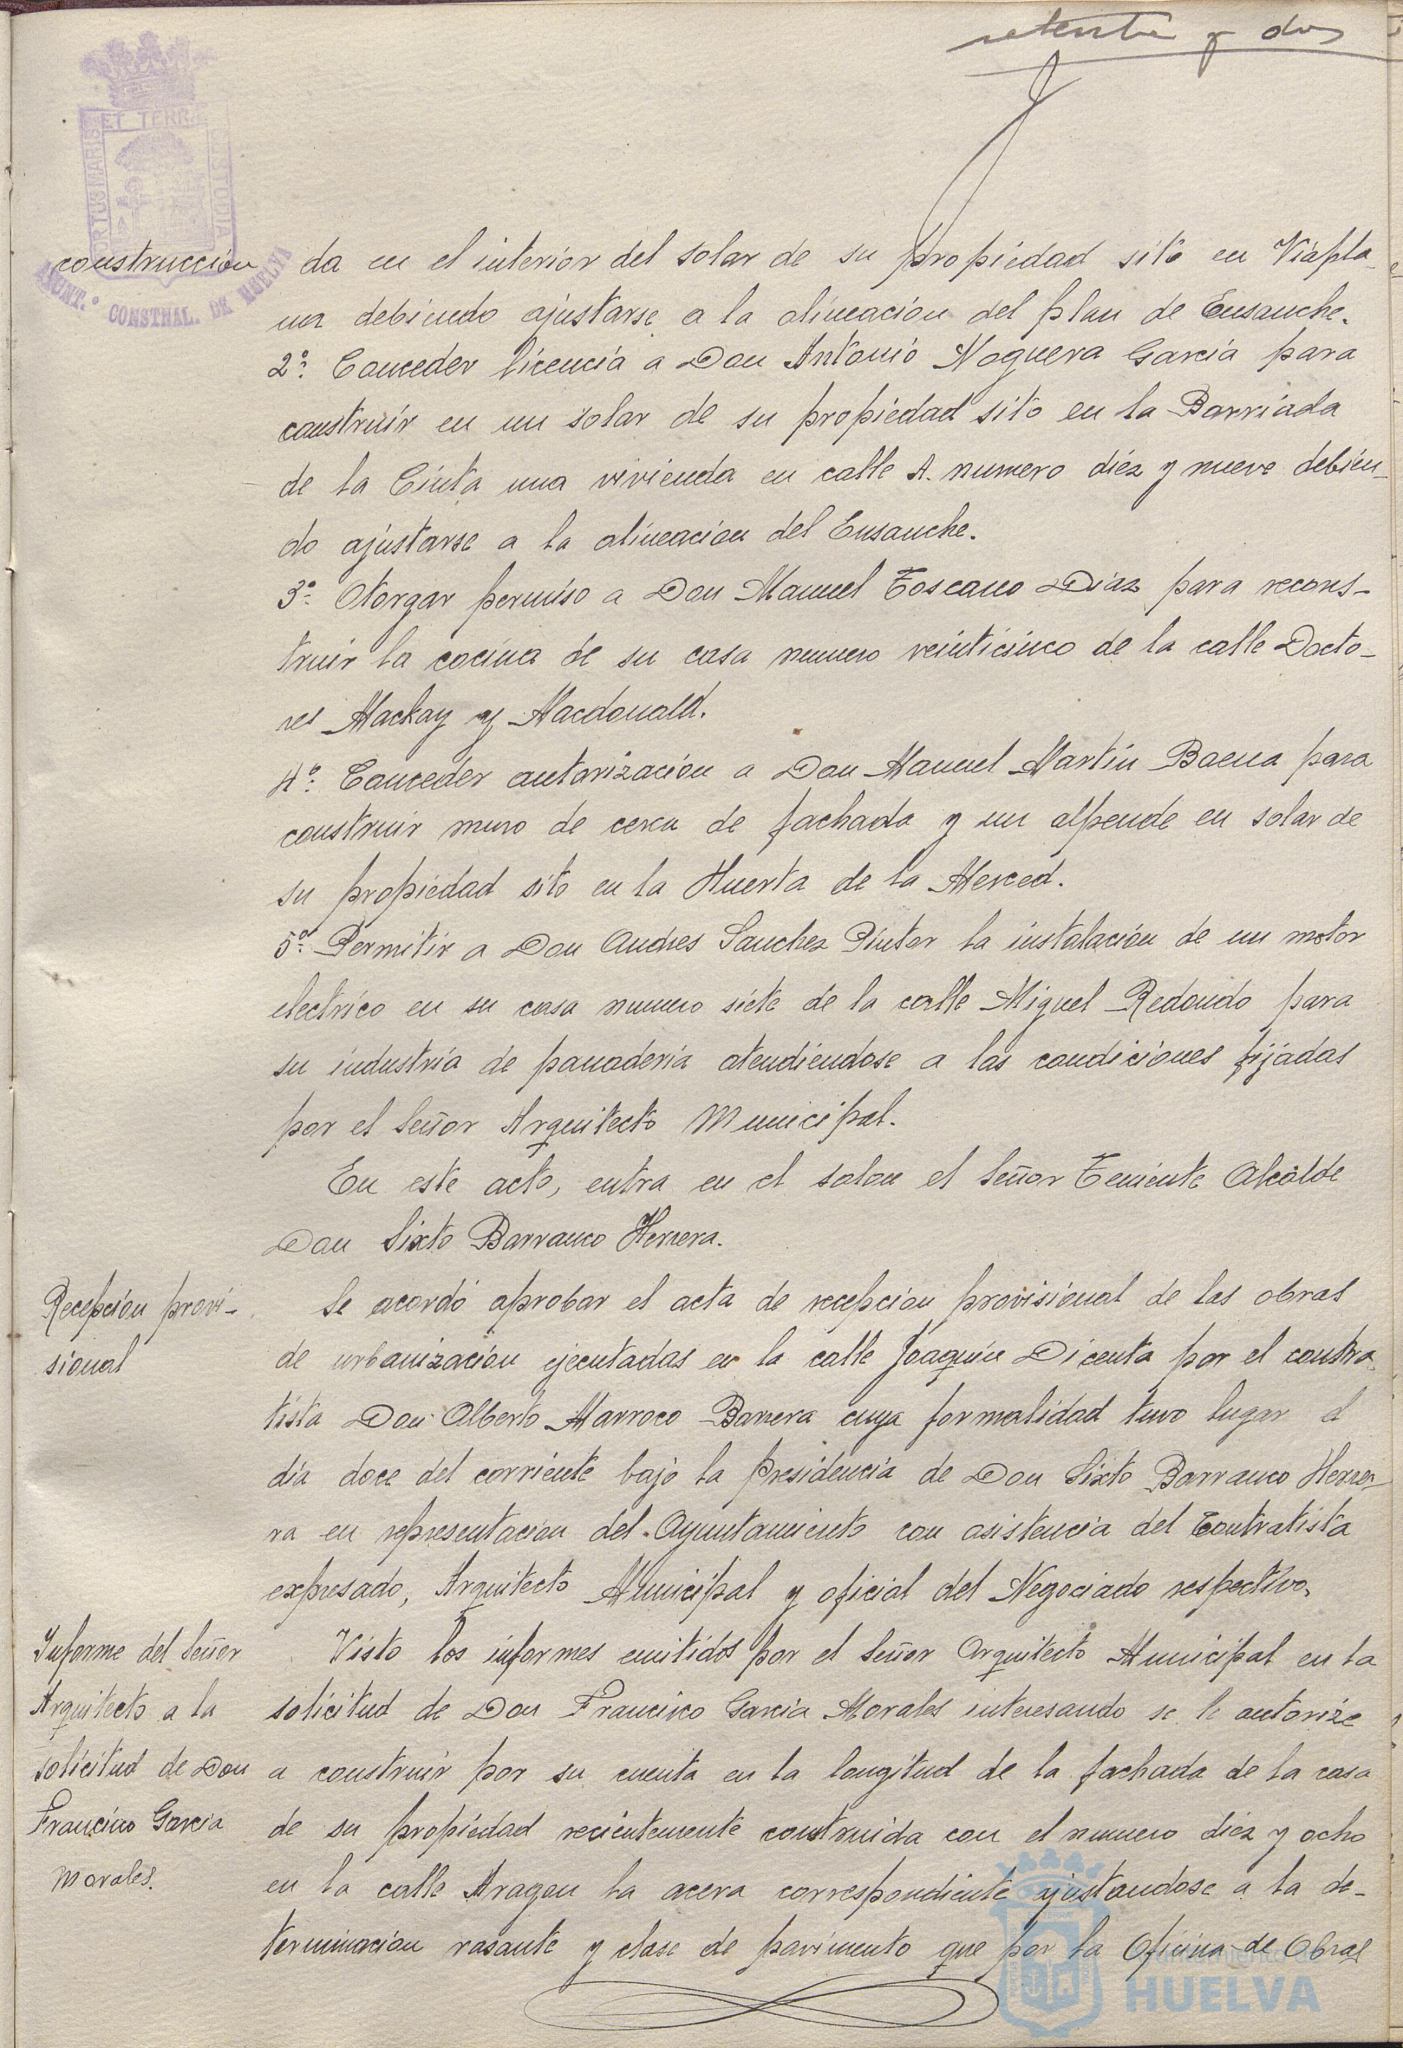 setenta y dos
PORTUS MARIS ET TERRAE CUSTODIA
AYUNT.º CONSTNAL. DE HUELVA
construccion
da en el interior del solar de su propiedad sito en Viapla-
na debiendo ajustarse a la alineacion del plan de Ensanche.
2º. Conceder licencia a Don Antonio Noguera Garcia para
construir en un solar de su propiedad sito en la Barriada
de la Cinta una vivienda en calle A. numero diez y nueve debien-
do ajustarse a la alineacion del Ensanche.
3º. Otorgar permiso a Don Manuel Toscano Diaz para recons-
truir la cocina de su casa numero veinticinco de la calle Docto-
res Mackay y Macdonald.
4º. Conceder autorizacion a Don Manuel Martin Baena para
construir muro de cerca de fachada y un alpende en solar de
su propiedad sito en la Huerta de la Merced.
5º. Permitir a Don Andres Sanchez Pinter la instalacion de un motor
electrico en su casa numero siete de la calle Miguel Redondo para
su industria de panaderia atendiendose a las condiciones fijadas
por el Señor Arquitecto Municipal.
En este acto, entra en el salon el Señor Teniente Alcalde
Don Sixto Barranco Herrera.
Recepcion provi-
sional
Se acordó aprobar el acta de recepcion provisional de las obras
de urbanizacion ejecutadas en la calle Joaquin Dicenta por el contra-
tista Don Alberto Marroco Barrera cuya formalidad tuvo lugar el
dia doce del corriente bajo la presidencia de Don Sixto Barranco Herre-
ra en representacion del Ayuntamiento con asistencia del Contratista
expresado, Arquitecto Municipal y oficial del Negociado respectivo.
Informe del Señor
Arquitecto a la
solicitud de Don
Francisco Garcia
Morales.
Visto los informes emitidos por el Señor Arquitecto Municipal en la
solicitud de Don Francisco Garcia Morales interesando se le autorize
a construir por su cuenta en la longitud de la fachada de la casa
de su propiedad recientemente construida con el numero diez y ocho
en la calle Aragon la acera correspondiente ajustandose a la de-
terminacion rasante y clase de pavimento que por la Oficina de Obras
Ayuntamiento de
HUELVA